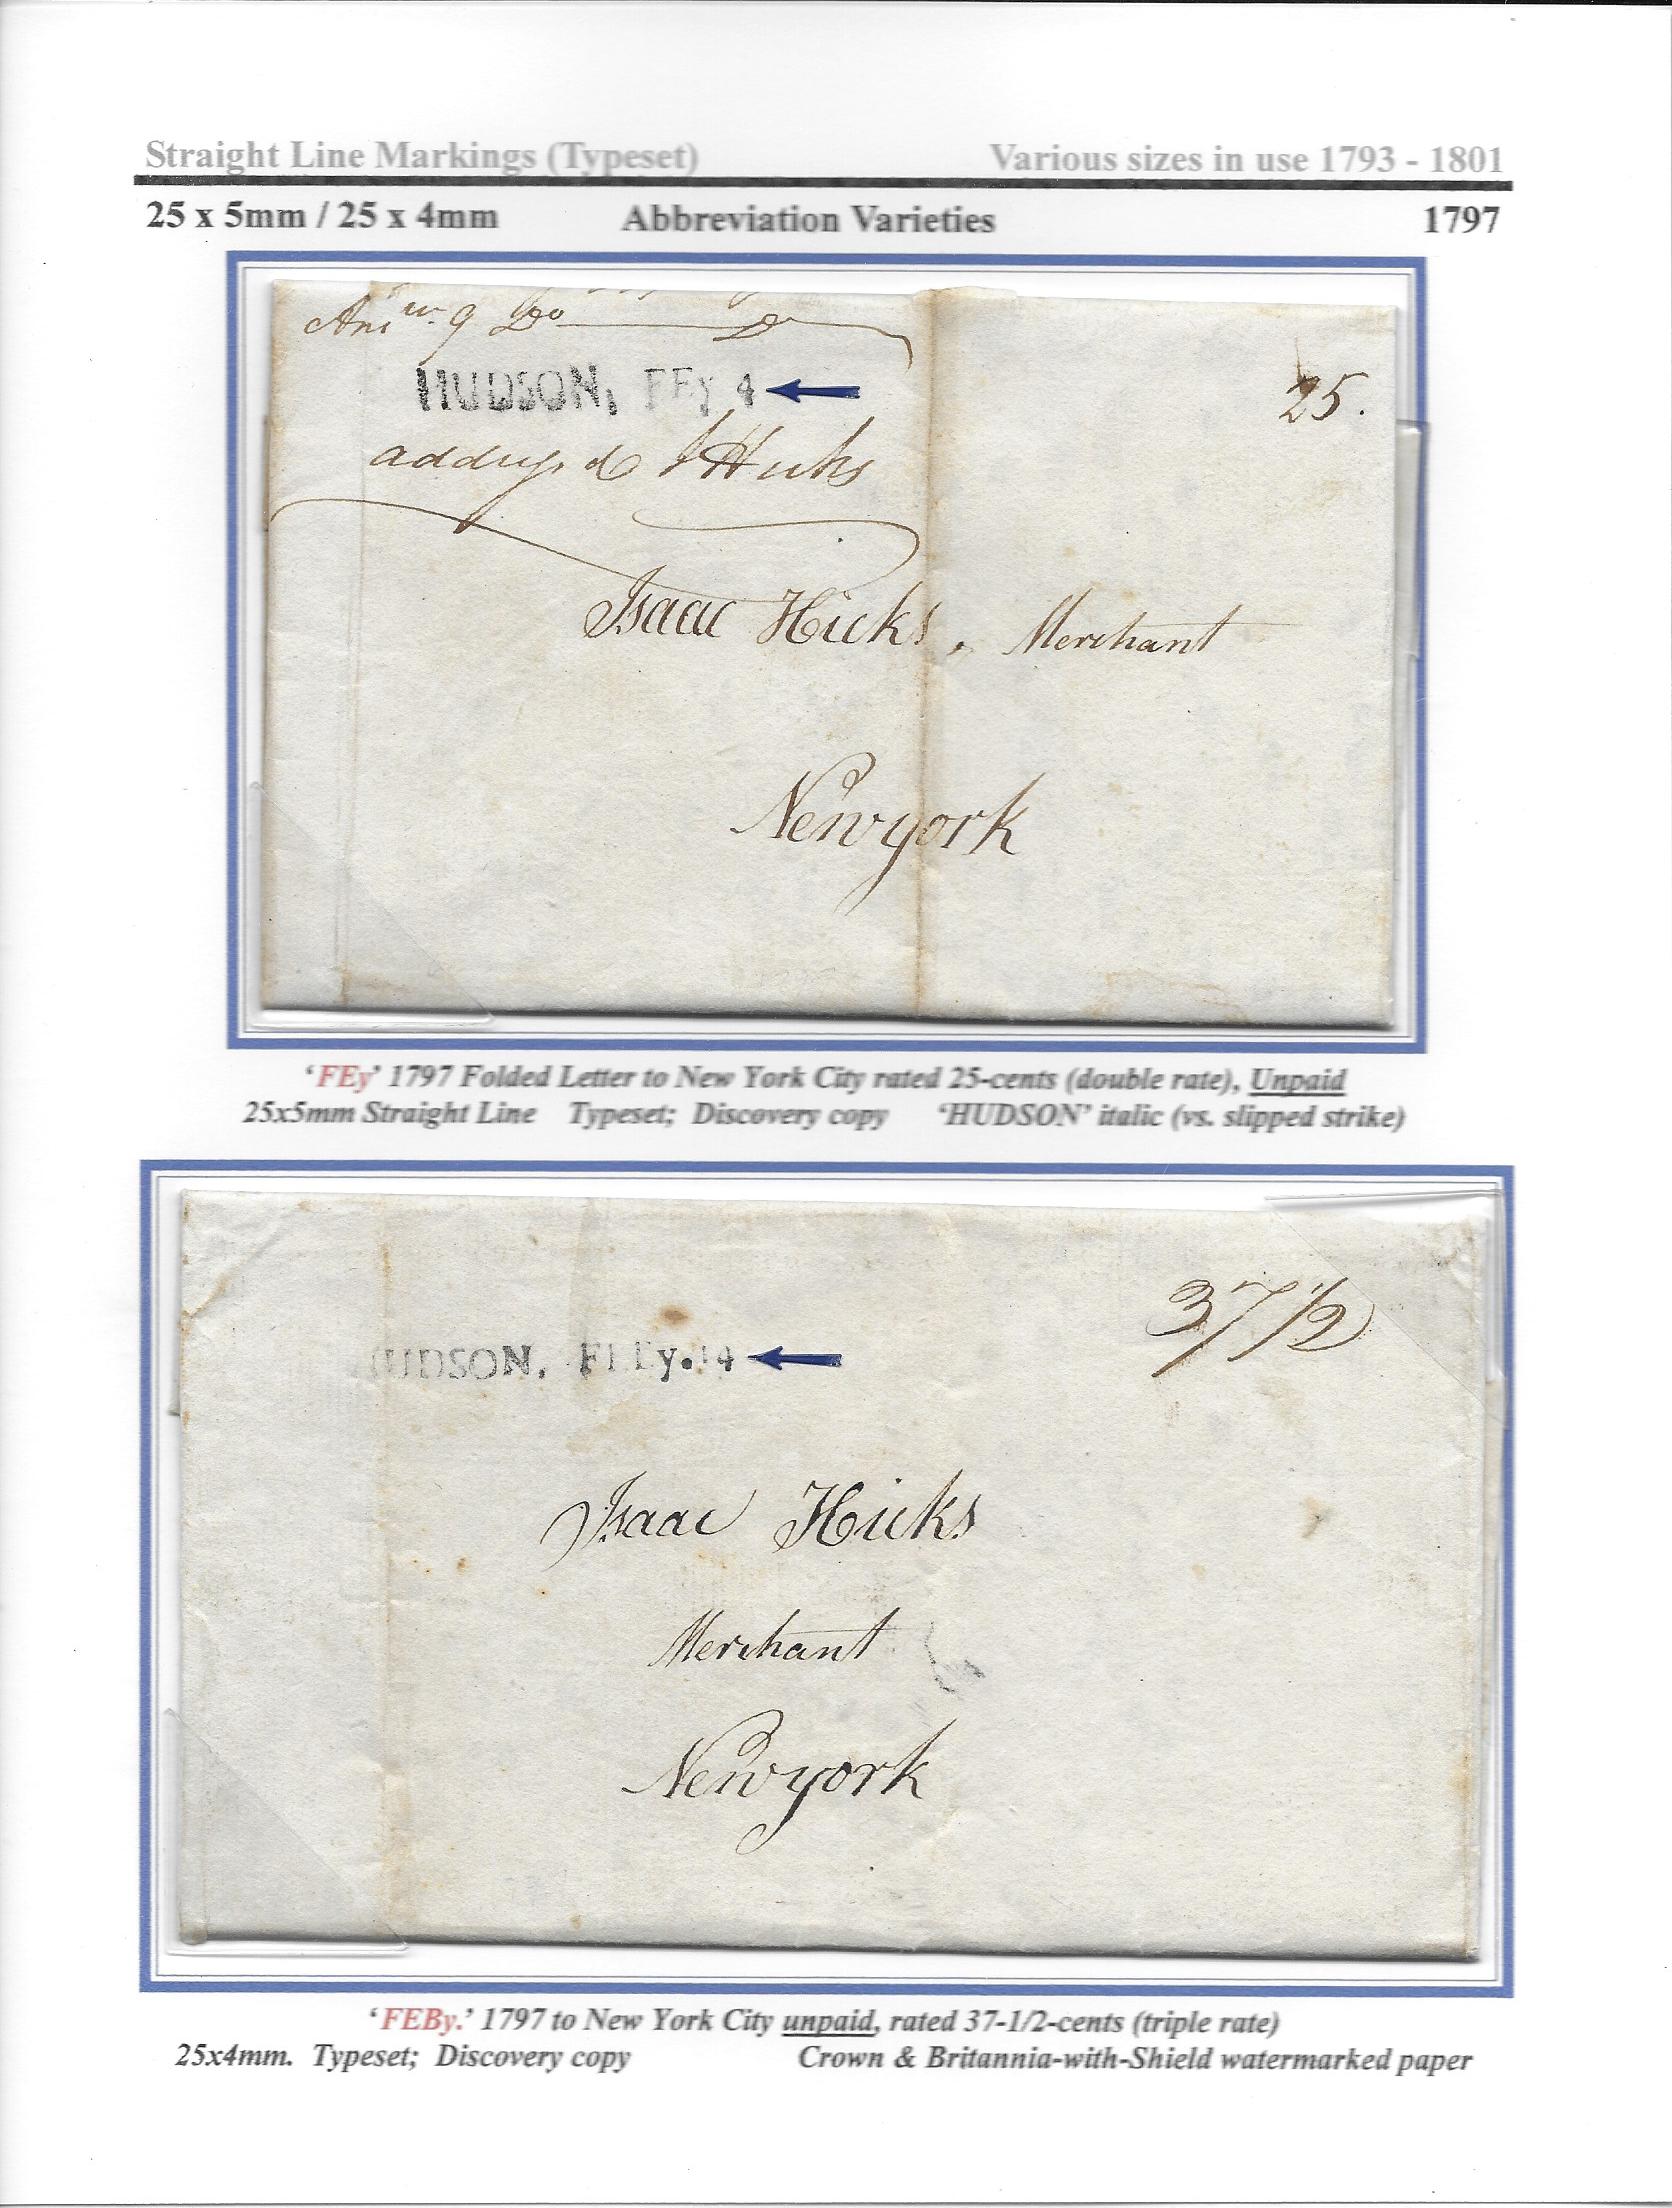 Straight Line Markings (Typeset) Various sizes in use 1793 - 1801
25 x 5mm / 25 x 4mm Abbreviation Varieties 1797
HUDSON, FEy 4
25.
Hicks
Isaac Hicks, Merchant
Newyork
‘FEy’ 1797 Folded Letter to New York City rated 25-cents (double rate), Unpaid
25x5mm Straight Line Typeset; Discovery copy ‘HUDSON’ italic (vs. slipped strike)
37 1/2
HUDSON, FEBy. 14
Isaac Hicks
Merchant
Newyork
‘FEBy.’ 1797 to New York City unpaid, rated 37-1/2-cents (triple rate)
25x4mm. Typeset; Discovery copy Crown & Britannia-with-Shield watermarked paper